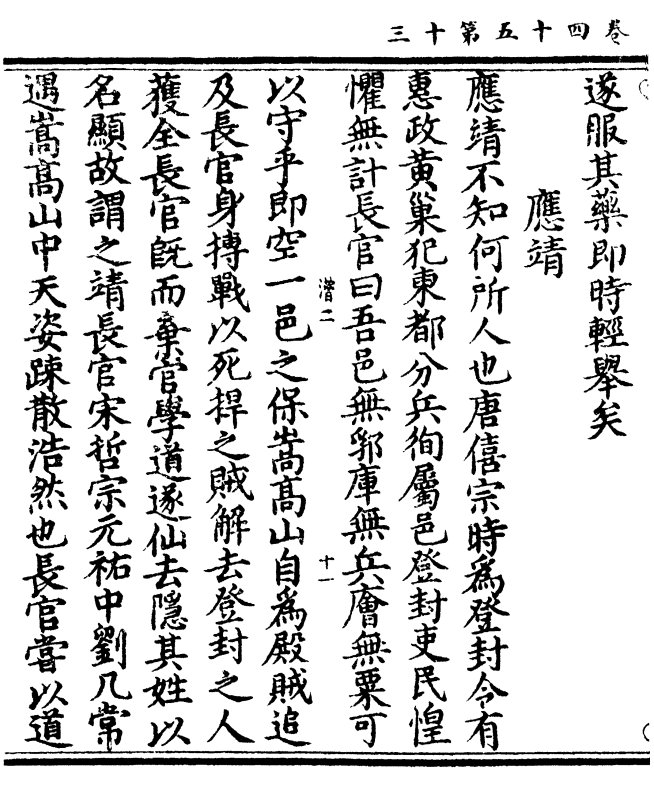 卷四十五第十三
遂服其藥即時輕舉矣
應靖
應靖不知何所人也唐僖宗時為登封令有
惠政黃巢犯東都分兵徇屬邑登封吏民惶
懼無計長官曰吾邑無郛庫無兵廥無粟可
潛二
十一
以守乎即空一邑之保嵩高山自為殿賊追
及長官身摶戰以死捍之賊解去登封之人
獲全長官既而棄官學道遂仙去隱其姓以
名顯故謂之靖長官宋哲宗元祐中劉几常
遇嵩高山中天姿踈散浩然也長官嘗以道